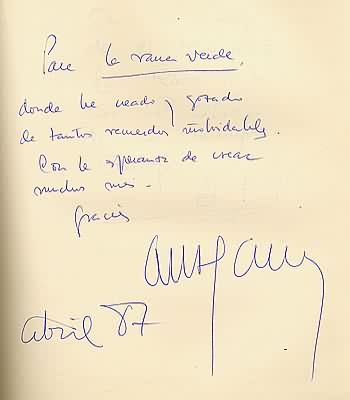 Para la rana verde,
donde he creado y gozado
de tantos recuerdos inolvidables.
Con la esperanza de crear
muchos más.
Gracias
abril 87